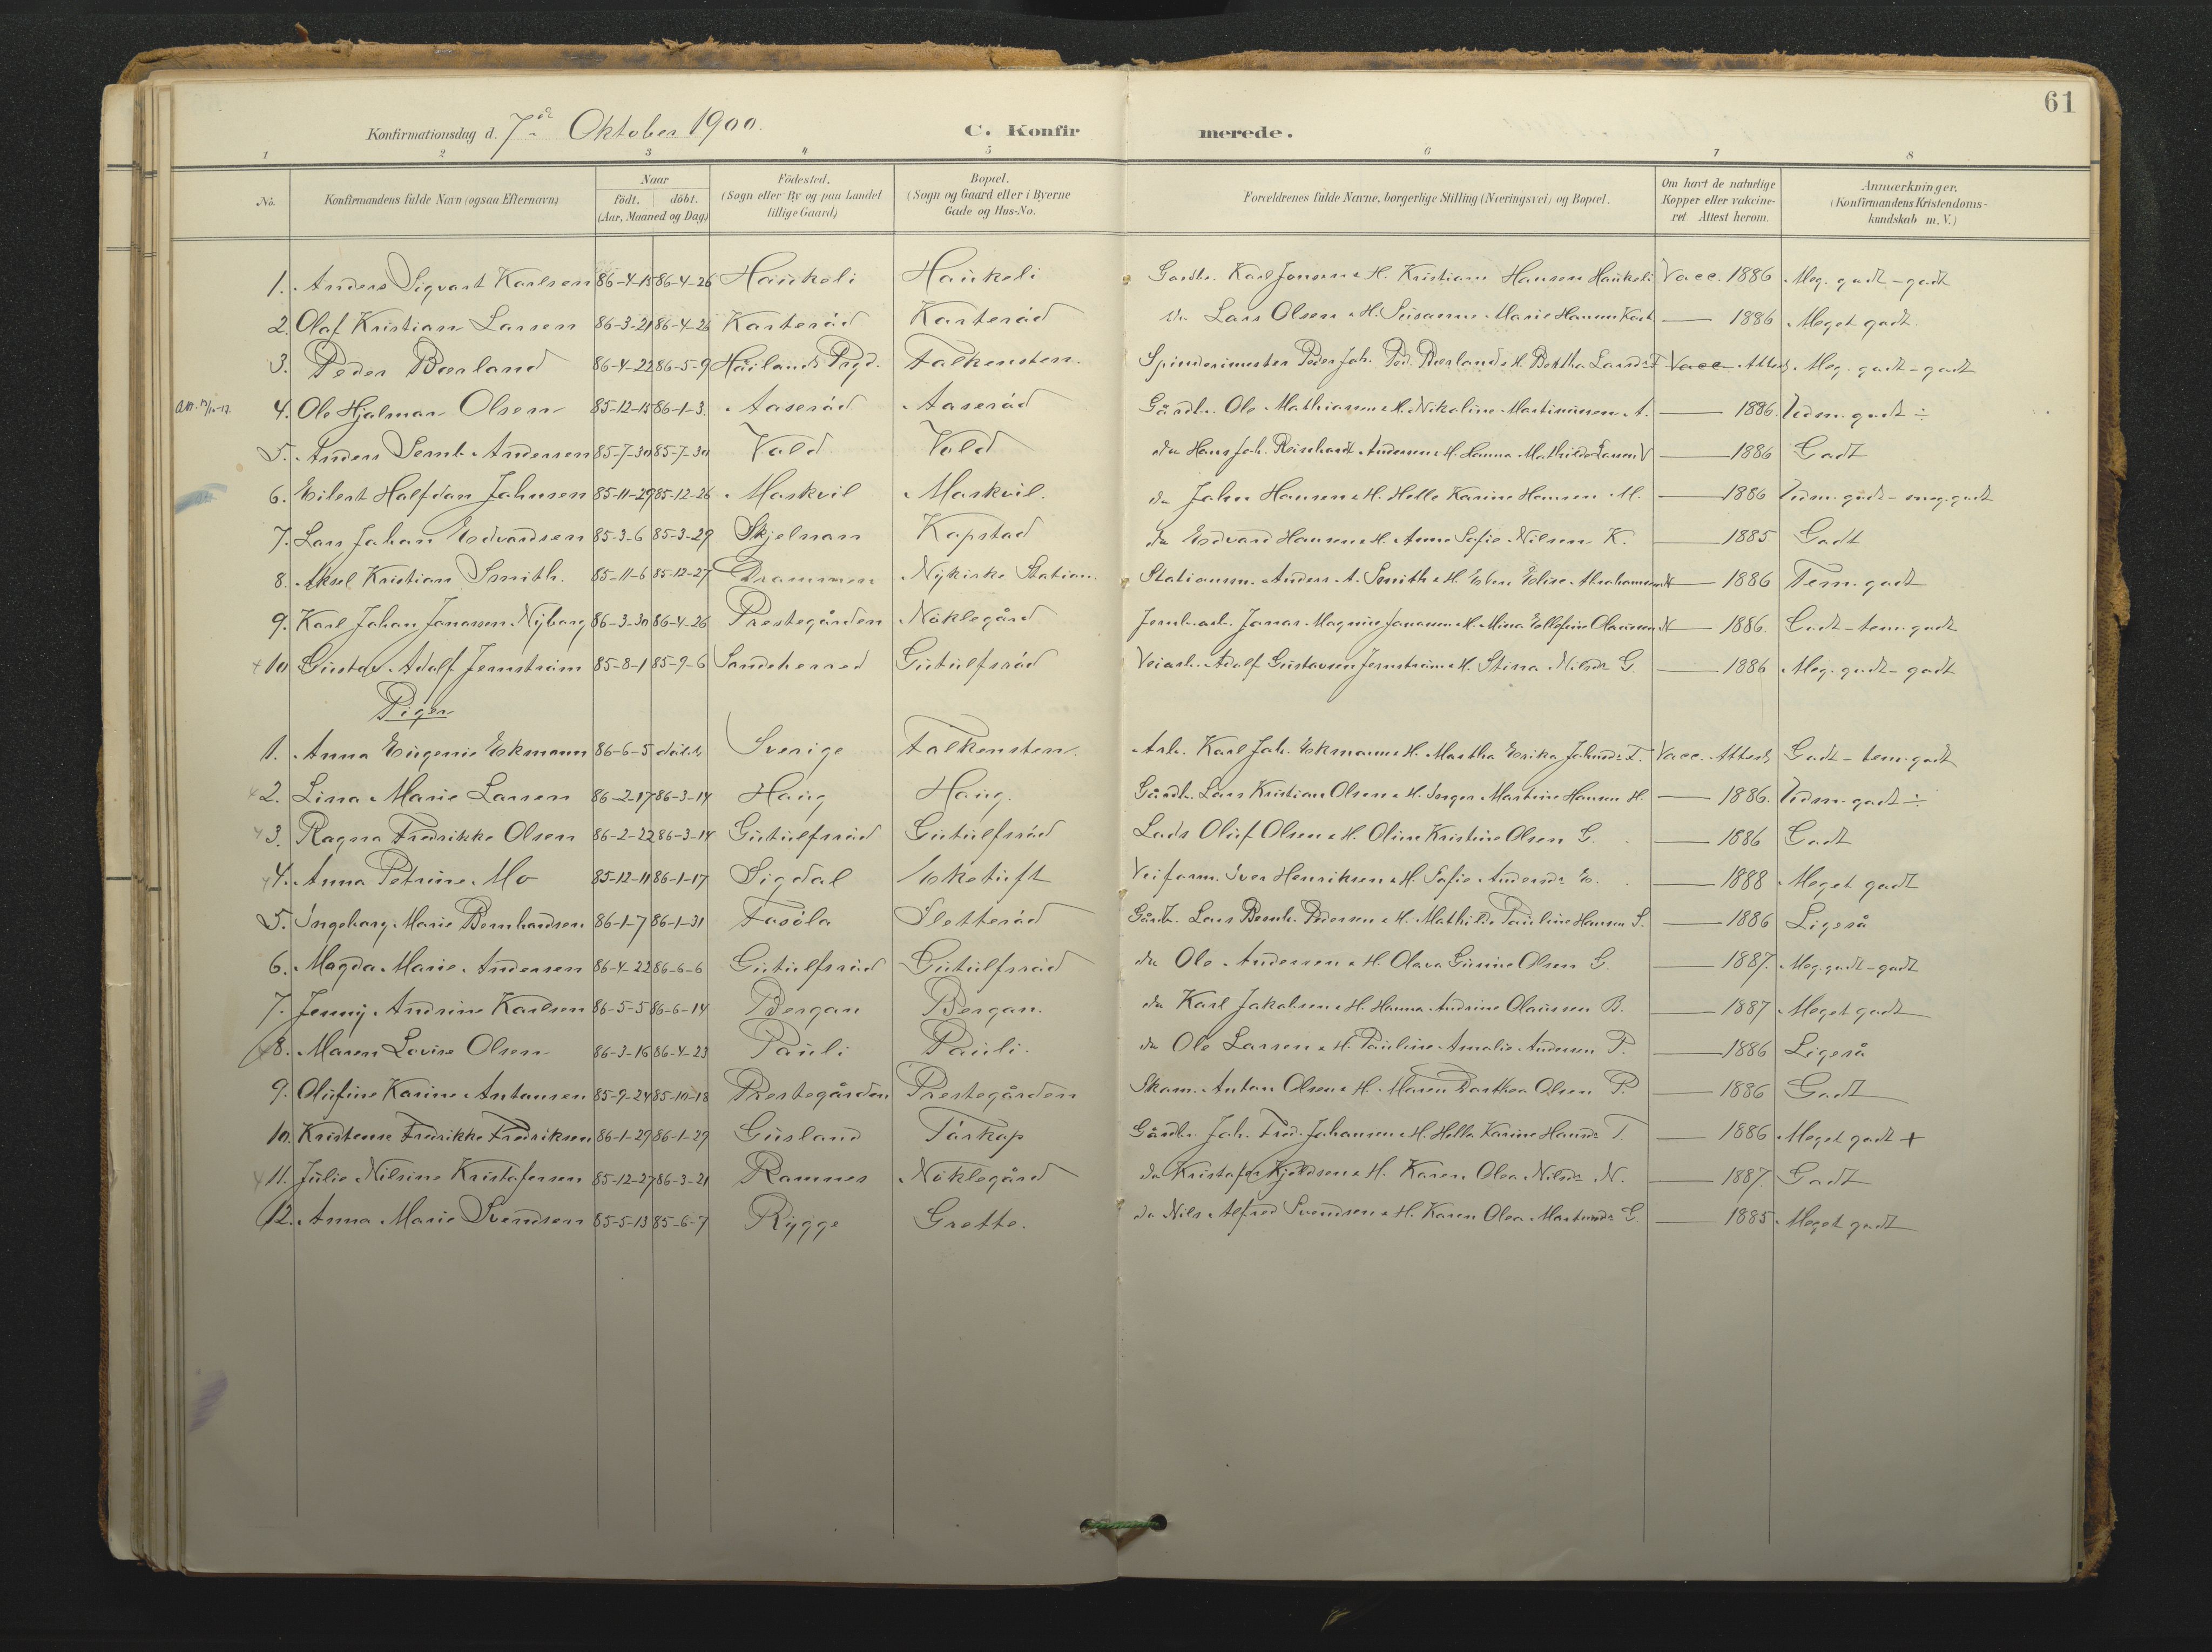 61
Konfirmationsdag d. 7de Oktober 1900. C. Konfirmerede.
1 2 3 4 5 6 7 8
No. Konfirmandens fulde Navn (ogsaa Efternavn) Naar født. døbt. (Aar, Maaned og Dag) Födested. (Sogn eller By og paa Landet tillige Gaard) Bopæl. (Sogn og Gaard eller i Byerne Gade og Hus-No. Forældrenes fulde Navne, borgerlige Stilling (Næringsvei) og Bopæl. Om havt de naturlige Kopper eller vakcineret Attest herom. Anmærkninger. (Konfirmandens Kristendomskundskab m. V.)
1. Anders Sigvart Karlsen 86-4-15 86-4-26 Haukeli Haukeli Gardbr. Karl Jonsen & H. Kristiane Hansen Haukeli Vacc. 1886 Meg. godt - godt
2. Olaf Kristian Larsen 86-3-21 86-4-26 Karterød Karterød do Lars Olsen & H. Susanne Marie Hansen Kart — 1886 Meget godt.
3. Peder Bærland 86-4-22 86-5-9 Håilands Prgd. Falkensten. Spinderimester Peder Joh. Ped. Bærland & H. Bertha Larsdr F Vacc. Attest Meg. godt - godt
4. Ole Hjalmar Olsen 85-12-15 86-1-3. Aaserød Aaserød Gårdbr. Ole Mathiassen & H. Nikoline Martinussen A. — 1886. Udm. godt ÷
5. Anders Semb Andersen 85-7-30 85-7-30 Vold Vold do Hans Joh. Reinhardt Andersen & H. Hanna Mathilde Larsen V — 1886 Godt
6. Eilert Halfdan Johnsen 85-11-29 85-12-26 Maskvil Maskvil. do John Hansen & H. Helle Karine Hansen M. — 1886 Udm. godt - meg. godt
7. Lars Johan Edvardsen 85-3-6 85-3-29 Skjelnan Kopstad do Edvard Hansen & H. Anne Sofie Nilsen K. — 1885 Godt
8. Aksel Kristian Smith. 85-11-6 85-12-27 Drammen Nykirke Station. Stationsm. Anders A. Smith & H. Elise Abrahamsen N — 1886 Tem. godt
9. Karl Johan Jonassen Nyborg 86-3-30 86-4-26 Prestegården Nöklegård Jernb.arb. Jonas Magnus Jonassen & H. Mina Ellefine Olaussen N — 1886. Godt - tem. godt
10 Gustav Adolf Jernström 85-8-1 85-9-6 Sandeherred Gutulfsrød Veiarb. Adolf Gustavsen Jernström & H. Stina Nilsdr G. — 1886 Meg. godt - godt
Piger
1. Anna Eugenie Ekmann 86-6-5 Sverige Falkensten. Arb. Karl Joh. Ekmann & H. Martha Erika Johnsdr F. Vacc. Attest Godt - tem. godt
2. Lina Marie Larsen 86-2-17 86-3-14 Haug Haug. Gårdbr. Lars Kristian Olsen & H. Inger Martine Hansen H. — 1886. Udm. godt ÷
3. Ragna Fredrikke Olsen 86-2-22 86-3-14 Gutulfsrød Gutulfsrød Lods Oluf Olsen & H. Oline Kristine Olsen G. — 1886 Godt
4. Anna Petrine Mo 85-12-11 86-1-17 Sigdal Eketuft Veiform. Iver Henriksen & H. Sofie Andersdr E. — 1888 Meget godt
5. Ingeborg Marie Bernhardsen 86-1-7 86-1-31 Fosöla Sletterød Gårdbr. Lars Bernh. Pedersen & H. Mathilde Pauline Hansen S. — 1886 Ligeså
6. Magda Marie Andersen 86-4-22 86-6-6 Gutulfsrød Gutulfsrød do Ole Andersen & H. Olava Gunine Olsen G. — 1887. Meg. godt - godt
7. Jenny Andrine Karlsen 86-5-5 86-6-14 Bergan Bergan. do Karl Jakobsen & H. Hanna Andrine Olaussen B. — 1887 Meget godt
8. Maren Lovise Olsen 86-3-16 86-4-23 Pauli Pauli. do Ole Larsen & H. Pauline Amalie Andersen P. — 1886 Ligeså
9. Olufine Karine Antonsen 85-9-24 85-10-18 Prestegården Prestegården Skom. Anton Olsen & H. Maren Dorthea Olsen P. — 1886 Godt
10. Kristense Fredrikke Fredriksen 86-1-29 86-1-29 Gusland Tórkop Gårdbr. Joh. Fred. Johansen & H. Helle Karine Hansdr T. — 1886 Meget godt +
11. Julie Nilsine Kristofersen 85-12-27 86-3-21 Ramnes Nöklegård do Kristofer Kjeldsen & H. Karen Olea Nilsdr N. — 1887. Godt
12. Anna Marie Svendsen 85-5-13 85-6-7 Rygge Grette. do Nils Alfred Svendsen & H. Karen Olea Martinsdr G. — 1885 Meget godt